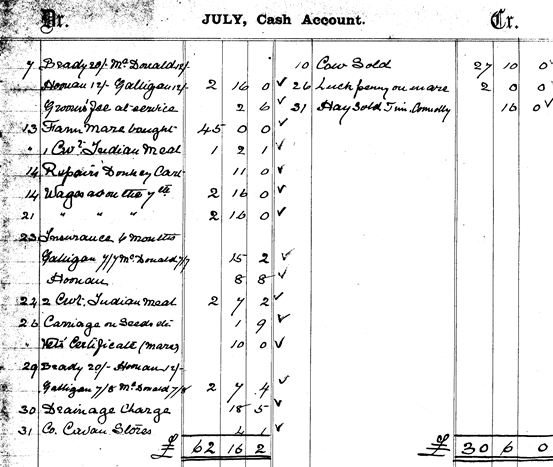 Dr. JULY, Cash Account. Cr.
7 Brady 20/- McDonald 12/-
Hoonan 12/- Galligan 12/- 2 16 0 ✓
Groom's fee at service 2 6 ✓
13 Farm Mare bought 45 0 0 ✓
" 1 Cwt. Indian Meal 1 2 1 ✓
14 Repairs Donkey Cart 11 0 ✓
14 Wages as on the 7th 2 16 0 ✓
21 " " " 2 16 0 ✓
23 Insurance 6 months
Galligan 7/7 McDonald 7/7 15 2 ✓
Hoonan 8 8 ✓
24 2 Cwt. Indian Meal 2 7 2 ✓
26 Carriage on Seeds etc 1 9 ✓
" Vet's Certificate (mare) 10 0 ✓
29 Brady 20/- Hoonan 12/-
Galligan 7/8 McDonald 7/8 2 7 4 ✓
30 Drainage Charge 18 5 ✓
31 Co. Cavan Stores 4 1 ✓
£ 62 16 2
10 Cow Sold 27 10 0 ✓
26 Luck penny on mare 2 0 0 ✓
31 Hay Sold Jim Connolly 16 0 ✓
£ 30 6 0